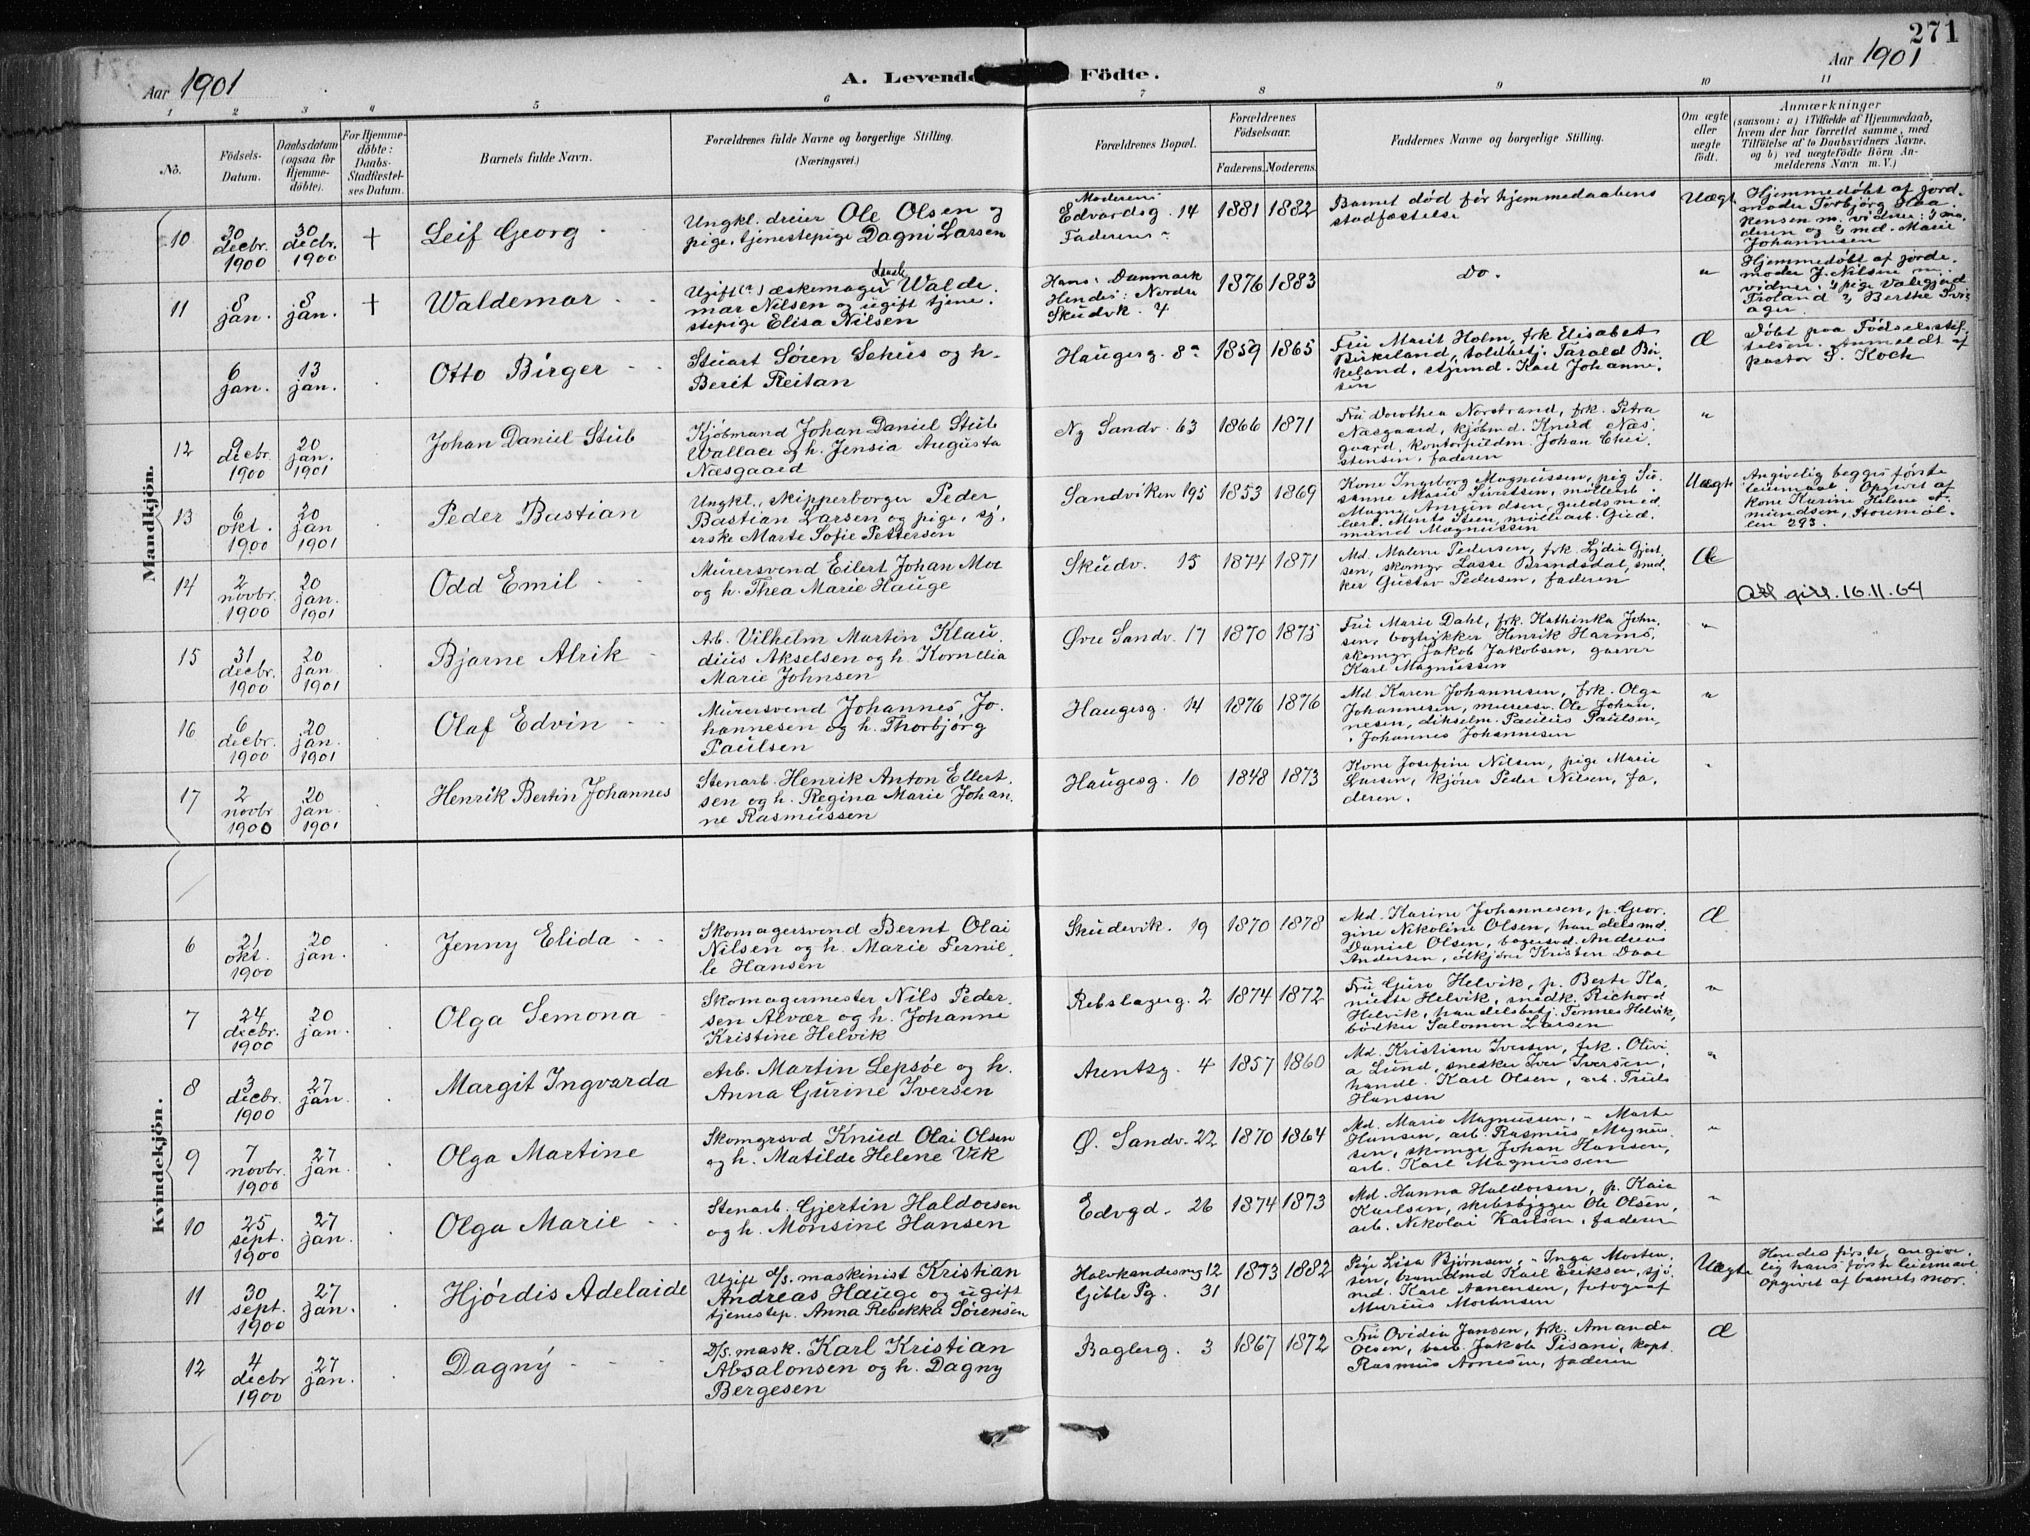 271
Aar 1901
A. Levende Födte.
Aar 1901
1 2 3 4 5 6 7 8 9 10 11
No.
Födsels-Datum.
Daabsdatum (ogsaa for Hjemmedöbte).
For Hjemmedöbte: Daabs-Stadfæstelses Datum.
Barnets fulde Navn.
Forældrenes fulde Navne og borgerlige Stilling.
(Næringsvei.)
Forældrenes Bopæl.
Forældrenes Födselsaar.
Faderens. Moderens.
Faddernes Navne og borgerlige Stilling.
Om ægte eller uægte födt.
Anmærkninger
(saasom: a) i Tilfælde af Hjemmedaab,
hvem der har forrettet samme, med
Tilföielse af to Daabsvidners Navne,
og b) ved uægtefödte Börn Anmelderens Navn m. V.)
Mandkjön.
10
30 decbr. 1900
30 decbr. 1900
+
Leif Georg
Ungkl. dreier Ole Olsen og
pige, tjenestepige Dagni Larsen
Moderens:
Edvardsg. 14
Faderens "
1881 1882
Barnet död før hjemmedaabens
stadfæstelse
Uægte
Hjemmedøbt af jord.
moder Torbjørg Haa
kensen m. vidner: 1 mo
deren og 2 md. Marie
Johannesen
11
8 jan.
8 jan.
+
Waldemar
dansk
Ugift æskemager Walde
mar Nilsen og ugift tjene.
stepige Elisa Nilsen
Hans: Danmark
Hendes: Nordre
Skudvk. 4
1876 1883
Do.
"
Hjemmedøbt af jorde.
moder J. Nilsen m.
vidner: 1 pige Valegjerd
Troland 2 Berthe
6 jan.
13 jan.
Otto Birger
Stuart Søren Schus og h.
Berit Reitan
Haugesg. 8a
1859 1865
Fru Marit Holm, frk Elisabet
Birkeland, toldbetj. Tarald Bir
keland, styrmd. Karl Johanne.
sen
Æ
Døbt paa Fødselsstif
telsen. Anmeldt af
pastor S. Koch
12
9 decbr. 1900
20 jan. 1901
Johan Daniel Stub
Kjøbmand Johan Daniel Stub
Wallace og h. Jensia Augusta
Næsgaard
Ny Sandv. 63
1866 1871
Fru Dorothea Norstrand, frk. Petra
Næsgaard, kjøbmd. Knud Næs
gaard, kontorfuldm. Johan Chri
stensen, faderen
"
13
6 okt. 1900
20 jan 1901
Peder Bastian
Ungkl., skipperborger Peder
Bastian Larsen og pige, sy.
erske Marte Sofie Pettersen
Sandviken 195
1853 1869
Kone Ingeborg Magnussen, pig Su
sanne Marie Sivertsen, møllearb.
Magne Amundsen, guldsmed
lærl. Monts Steen, møllearb. Gud.
mund Magnussen
Uægte
Angivelig begges første
leiermaal. Opgivet af
kone Karine Helene A
mundsen, Storemøl
len 293.
14
2 novbr. 1900
20 jan. 1901
Odd Emil
Murersvend Eilert Johan Moe
og h. Thea Marie Hauge
Skudv. 15
1874 1871
Md. Malene Pedersen, frk. Lydia Gjert
sen, skomgr Lasse Brandsdal, smd.
ker Gustav Pedersen, faderen
Æ
Att gitt. 16.11.64
15
31 decbr. 1900
20 jan. 1901
Bjarne Alrik
Arb. Vilhelm Martin Klau
dius Akselsen og h. Kornelia
Marie Johnsen
Øvre Sandv. 17
1870 1875
Fru Marie Dahl, frk. Kathinka John
sen, bogtrykker Henrik Harms,
skomgr Jakob Jakobsen, garver
Karl Magnussen
"
16
6 decbr. 1900
20 jan. 1901
Olaf Edvin
Murersvend Johannes Jo.
hannesen og h. Thorbjørg
Paulsen
Haugesg. 14
1876 1876
Md. Karen Johannesen, frk. Olga
Johannesen, murersv. Ole Johan.
nesen, dikselm. Paulus Paulsen,
" Johannes Johannesen
"
17
2 novbr 1900
20 jan. 1901
Henrik Bertin Johannes
Stenarb. Henrik Anton Ellert.
sen og h. Regina Marie Johan.
ne Rasmussen
Haugesg. 10
1848 1873
Kone Josefine Nilsen, pige Marie
Larsen, kjører Peder Nilsen, fa.
deren.
"
Kvindekjön.
6
21 okt. 1900
20 jan.
Jenny Elida
Skomagersvend Bernt Olai
Nilsen og h. Marie Pernil.
le Hansen
Skudevik. 19
1870 1878
Md. Karine Johannesen, p. Geor.
gine Nikoline Olsen, handelsmd.
Daniel Olsen, bagersvd. Andreas
Andersen, ølkjører Kristen Daae
Æ
7
24 decbr. 1900
20 jan.
Olga Semona
Skomagermester Nils Peder.
sen Alvær og h. Johanne
Kristine Helvik
Rebslagerg. 2
1874 1872
Fru Guro Helvik, p. Berte Ka.
nielse Helvik, snedk. Richard
Helvik, handelsbetj. Tønnes Helvik,
bødker Salomon Larsen
"
8
3 decbr. 1900
27 jan.
Margit Ingvarda
Arb. Martin Lepsøe og h.
Anna Gurine Iversen
Arentzg. 4
1857 1860
Md. Kristiane Iversen, frk. Olivi
a Lund, snedker Iver Iversen,
handl. Karl Olsen, arb. Truls
Hansen
"
9
7 novbr. 1900
27 jan.
Olga Martine
Skomgrsvd Knud Olai Olsen
og h. Matilde Helene Vik
Ø. Sandv. 22
1870 1864
Md. Marie Magnussen, " Marte
Hansen, arb. Rasmus Magnus
sen, skomgr Johan Hansen,
arb. Karl Magnussen
"
10
25 sept. 1900
27 jan.
Olga Marie
Stenarb. Gjertin Haldorsen
og h. Monsine Hansen
Edvgd. 26
1874 1873
Md. Hanna Haldorsen, p. Kaia
Karlsen, skibsbygger Ole Olsen,
arb. Nikolai Karlsen, faderen
"
11
30 sept. 1900
27 jan.
Hjørdis Adelaide
Ugift d/s. maskinist Kristian
Andreas Hauge og ugift
tjenestep. Anna Rebekka Sørensen
Halvkandesmg 12
Gible Pg. 31
1873 1882
Pige Lisa Bjørnsen, " Inga Morten
sen, brandmd Karl Eriksen, sjø
md. Karl Aanensen, fotograf
Marius Mortensen
Uægte
Hendes første, angive.
lig hans første leiermaal
opgivet af barnets mor.
12
4 decbr 1900
27 jan.
Dagny
D/s. mask. Karl Kristian
Absalonsen og h. Dagny
Bergesen
Baglerg. 3
1867 1872
Fru Ovidia Jansen, frk. Amanda
Olsen, barb. Jakob Pisani, kapt.
Rasmus Arnesen, faderen
Æ